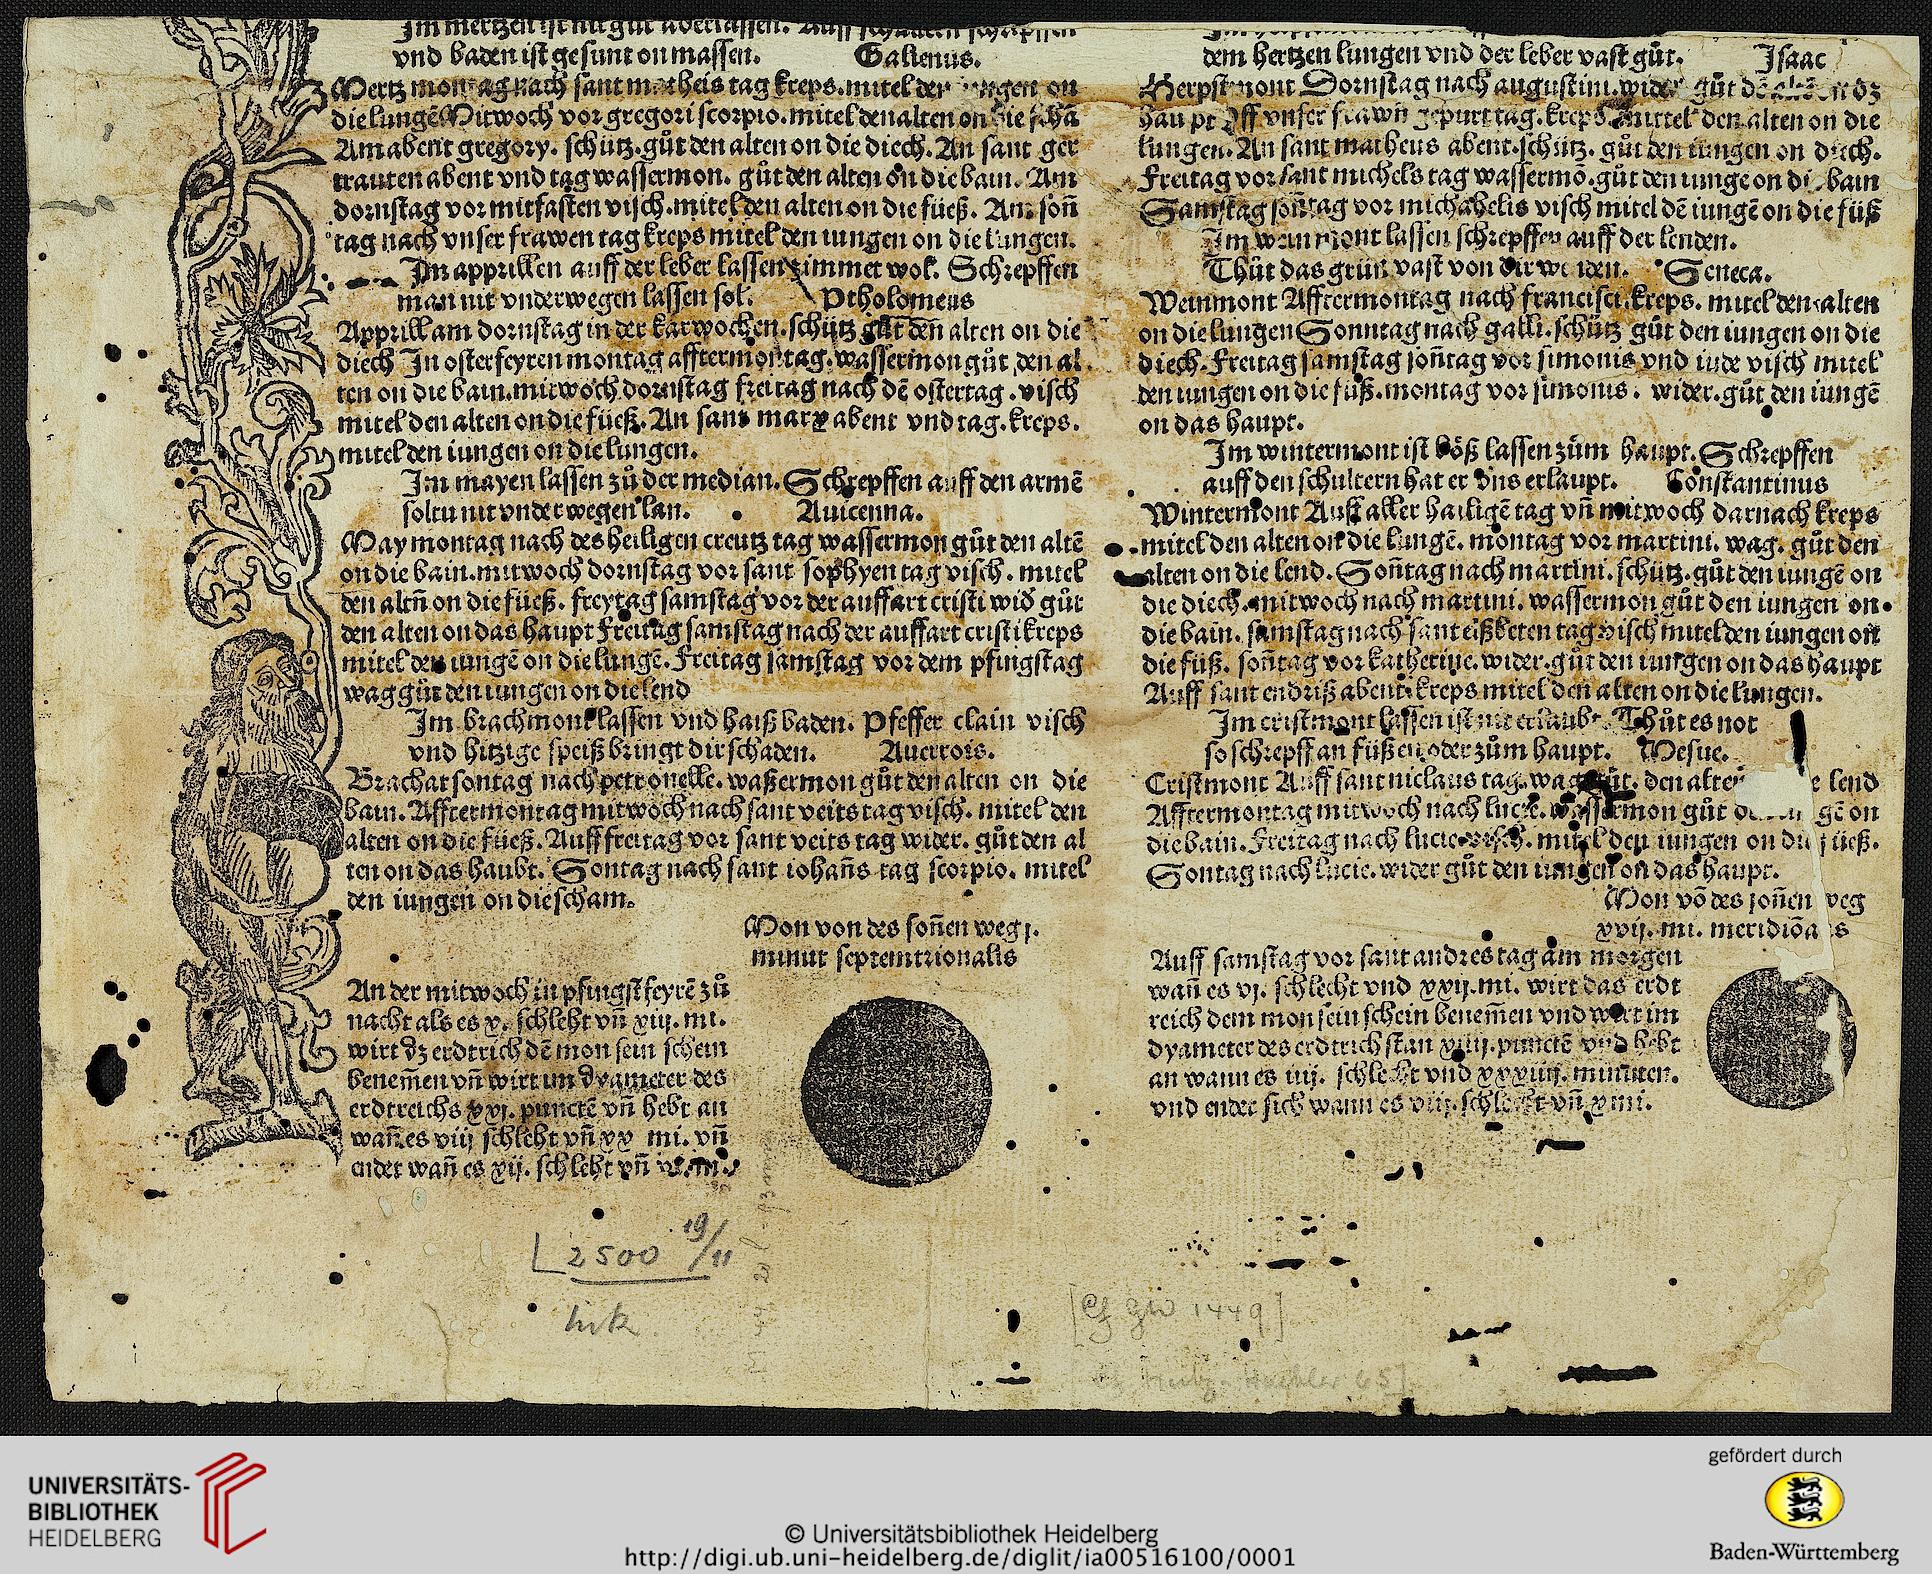 Im mertzen ist nit gut aderlassen. Auff schultern schrepffen
vnd baden ist gesunt on massen. Galienus.
Mertz montag nach sant matheis tag kreps. mitel den iungen on
die lungē Mitwoch vor gregori scorpio. mitel den alten on die schā
Am abent gregory. schütz. gůt den alten on die diech. An sant ger
trauten abent vnd tag wassermon. gůt den alten on die bain. Am
dornstag vor mitfasten visch. mitel den alten on die füeß. Am soñ
tag nach vnser frawen tag kreps mitel den iungen on die lungen.
Im apprillen auff der leber lassen zimmet wol. Schrepffen
man nit vnderwegen lassen sol. Ptholomeus
Apprill am dornstag in der karwochen. schütz gůt den alten on die
diech In osterfeyren montag afftermontag. wassermon gůt den al
ten on die bain. mitwoch dornstag freitag nach dē ostertag. visch
mitel den alten on die füeß. An sant marx abent vnd tag. kreps.
mitel den iungen on die lungen.
Im mayen lassen zů der median. Schrepffen auff den armē
soltu nit vnderwegen lan. Auicenna.
May montag nach des heiligen creutz tag wassermon gůt den altē
on die bain. mitwoch dornstag vor sant sophyen tag visch. mitel
den altñ on die füeß. freytag samstag vor der auffart cristi wid gůt
den alten on das haupt Freitag samstag nach der auffart cristi kreps
mitel den iungē on die lungē. Freitag samstag vor dem pfingstag
wag gůt den iungen on die lend
Im brachmont lassen vnd haiß baden. Pfeffer clain visch
vnd hitzige speiß bringt dir schaden. Auerrois.
Brachat sontag nach petronelle. waßermon gůt den alten on die
bain. Afftermontag mitwoch nach sant veits tag visch. mitel den
alten on die füeß. Auff freitag vor sant veits tag wider. gůt den al
ten on das haubt. Sontag nach sant iohañs tag scorpio. mitel
den iungen on die scham.
Mon von des soñen weg j.
minut septemtrionalis
An der mitwoch in pfingstfeyrē zů
nacht als es x. schleht vñ xiij. mi.
wirt dz erdtrich dē mon sein schein
benem̃en vñ wirt im dyameter des
erdtreichs xxj. punctē vñ hebt an
wañ es viij schleht vñ xx mi. vñ
endet wañ es xij. schleht vñ
dem hertzen lungen vnd der leber vast gůt. Isaac
Herpstmont Dornstag nach augustini. wider gůt dē altē on dz
haupt Uff vnser frawñ gepurt tag. kreps mittel den alten on die
lungen. An sant matheus abent. schütz. gůt den iungen on diech.
Freitag vor sant michels tag wassermō. gůt den iunge on die bain
Samstag soñtag vor michahelis visch mitel dē iungē on die füß
Im weinmont lassen schrepffen auff der lenden.
Thůt das grün vast von dir wenden. Seneca.
Weinmont Afftermontag nach francisci. kreps. mitel den alten
on die lungen Sonntag nach galli. schütz gůt den iungen on die
diech. Freitag samstag soñtag vor simonis vnd iude visch mitel
den iungen on die füß. montag vor simonis. wider. gůt den iungē
on das haupt.
Im wintermont ist böß lassen zům haupt. Schrepffen
auff den schultern hat er vns erlaupt. Constantinus
Wintermont Auff aller hailigē tag vñ mitwoch darnach kreps
mitel den alten on die lungē. montag vor martini. wag. gůt den
alten on die lend. Soñtag nach martini. schütz. gůt den iungē on
die diech. mitwoch nach martini. wassermon gůt den iungen on
die bain. samstag nach sant elßbeten tag visch mitel den iungen on
die füß. soñtag vor katherine. wider. gůt den iungen on das haupt
Auff sant endriß abent. kreps mitel den alten on die lungen.
Im cristmont lassen ist nit erlaubt. Thůt es not
so schrepff an füßen oder zům haupt. Mesue.
Cristmont Auff sant niclaus tag. wag gůt. den alten lend
Afftermontag mitwoch nach lucie. wassermon gůt gē on
die bain. Freitag nach lucie. visch. mitel den iungen on die füeß.
Sontag nach lucie. wider gůt den iungen on das haupt.
Mon vō des soñen weg
xvij. mi. meridiōa s
Auff samstag vor sant andres tag am morgen
wañ es vj. schlecht vnd xxij. mi. wirt das erdt
reich dem mon sein schein benem̃en vnd wirt im
dyameter des erdtrich stan xviij. punctē vnd hebt
an wann es iiij. schlecht vnd xxxiiij. minuten.
vnd endet sich wann es viij. schlecht vñ xiiii.
2500 19/11
[Cf GW 1449]
UNIVERSITÄTS-
BIBLIOTHEK
HEIDELBERG
© Universitätsbibliothek Heidelberg
http://digi.ub.uni-heidelberg.de/diglit/ia00516100/0001
gefördert durch
Baden-Württemberg